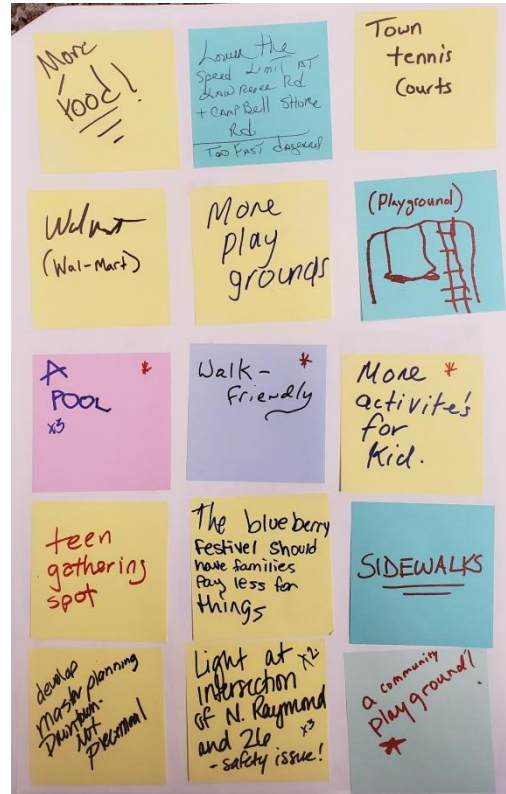 More
Food!
Lower the
Speed Limit AT
Rd
+ CAMPBell SHORE
Rd
Too FAST dangerous
Town
tennis
Courts
Walmart
(Wal-Mart)
More
play
grounds
(Playground)
A *
POOL
x3
Walk- *
Friendly
More *
activite's
for
Kid.
teen
gathering
spot
The blueberry
Festival should
have families
Pay less for
things
SIDEWALKS
develop
master planning
Downtown-
Not
Piecemeal
Light at x2
intersection
of N. Raymond
and 26 x3
- safety issue!
a community
playground!